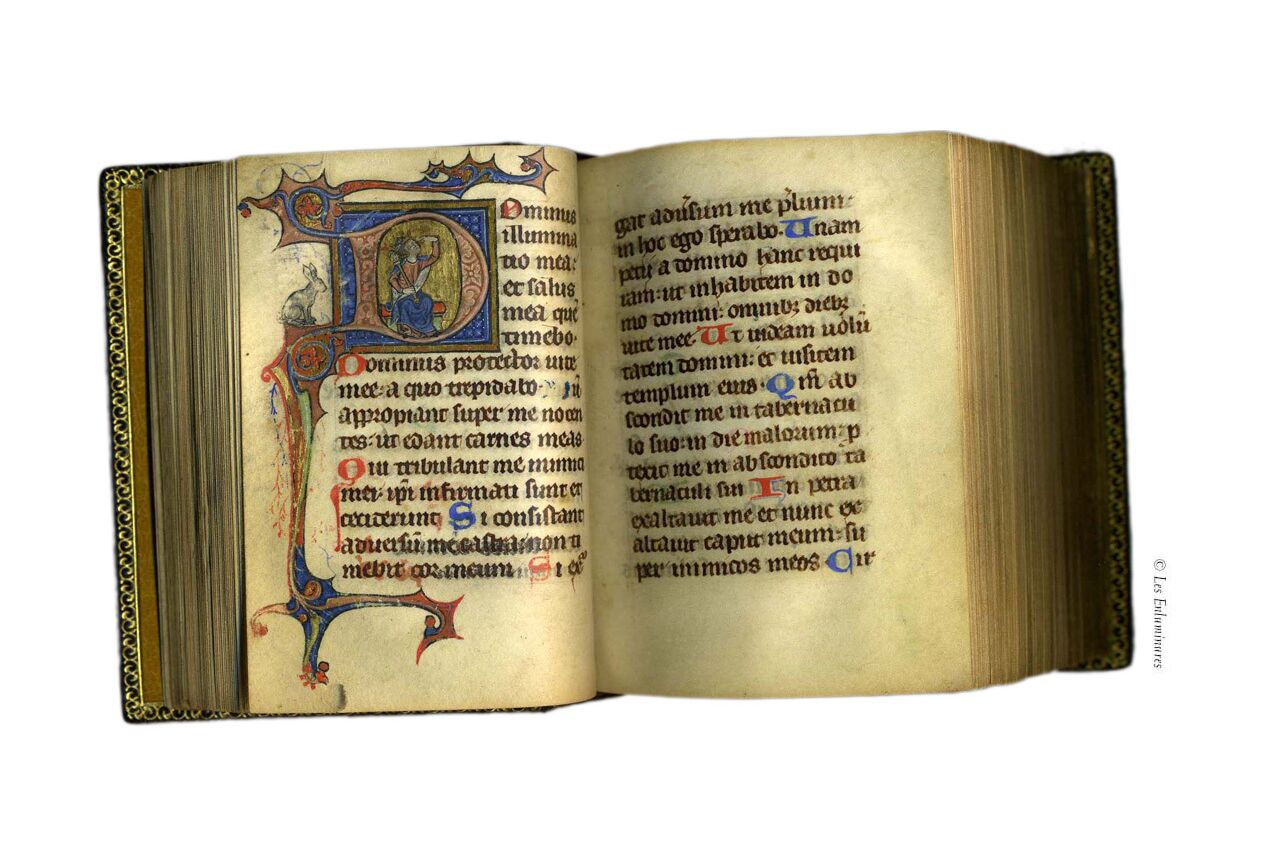 Dominus
illumina
tio mea:
et salus
mea que
timebo.
Dominus protector uite
mee: a quo trepidabo.
appropiant super me nocen
tes: ut edant carnes meas
Qui tribulant me inimici
mei: ipi infirmati sunt et
ceciderunt Si consistant
aduersu me castra: non ti
mebit cor meum Si ex
gat adusum me plium:
in hoc ego sperabo. Unam
petii a domino hanc requi
ram: ut inhabitem in do
mo domini: omnibz diebz
uite mee. Ut uideam uolu
tatem domini: et uisitem
templum eius. Qm ab
scondit me in tabernacu
lo suo: in die malorum: p
texit me in abscondito ta
bernaculi sui In petra
exaltauit me et nunc ex
altauit caput meum: su
per inimicos meos Cir
© Les Enluminures